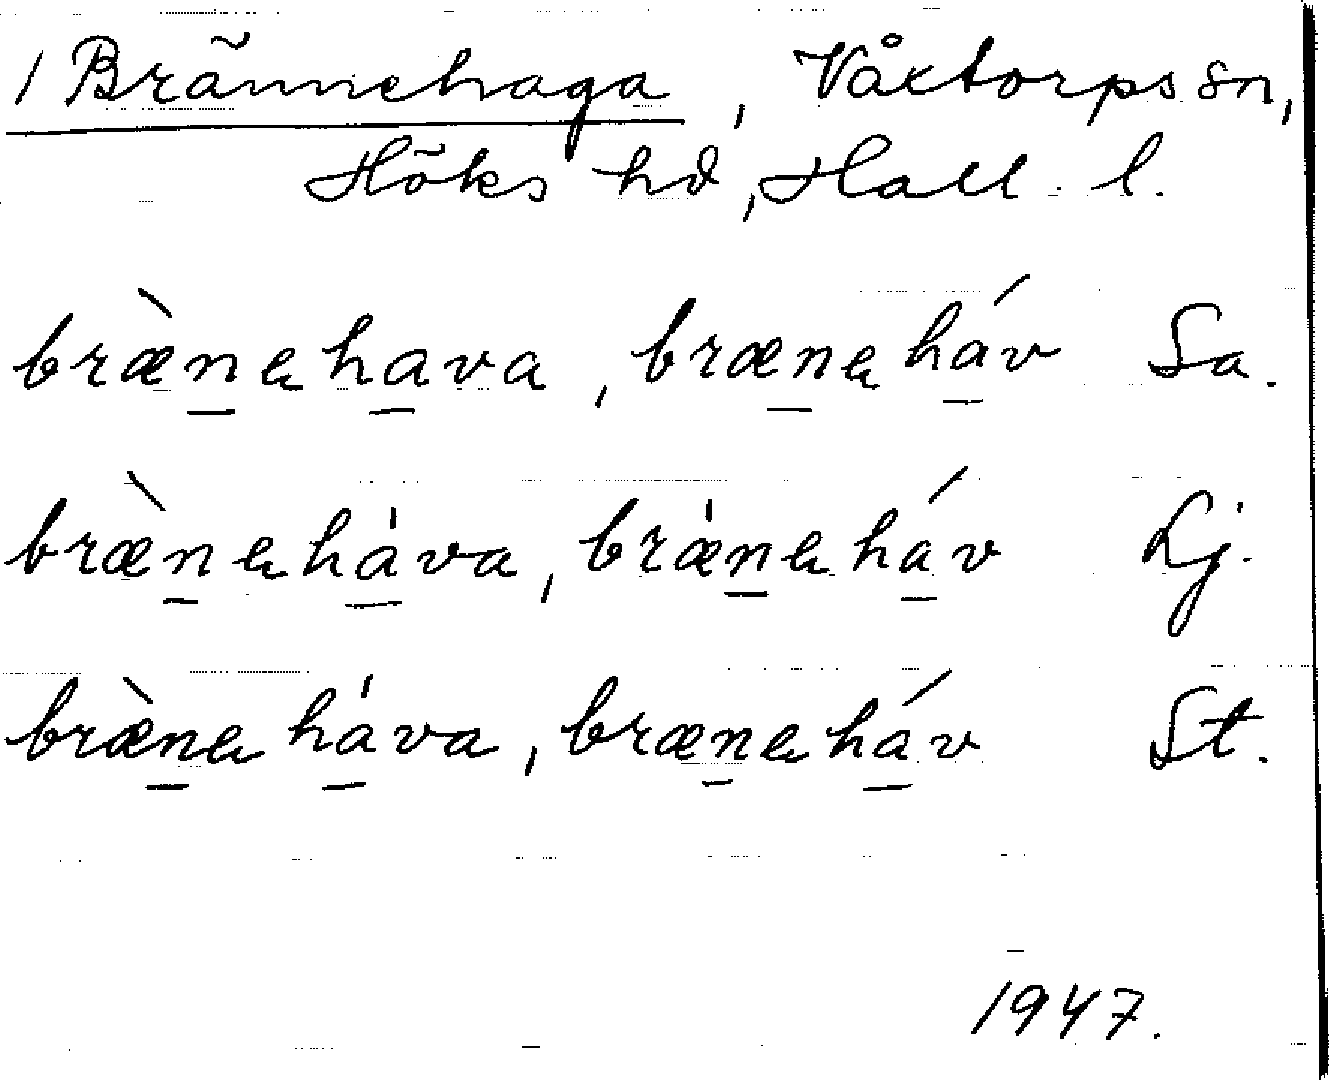 1 Brännehaga, Våxtorps sn,
Höks hd, Hall. l.
bræ̀nehava, bræneháv Sa.
bræ̀neha̍va, bræ̍neháv Lj.
bræ̀neha̍va, bræneháv St.
1947.